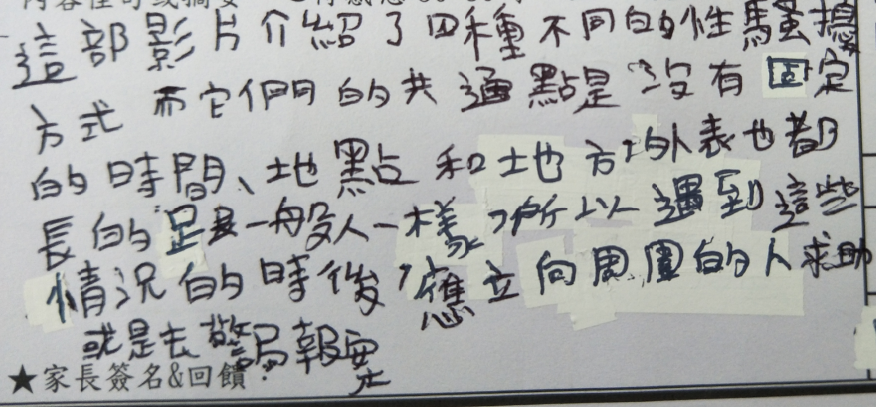 內容佳句或摘要
這部影片介紹了四種不同的性騷擾
方式而它們的共通點是沒有固定
的時間、地點和地方的外表也都
長的跟一般人一樣,所以遇到這些
情況的時後,應立向周圍的人求助
或是去警局報案
★家長簽名&回饋: